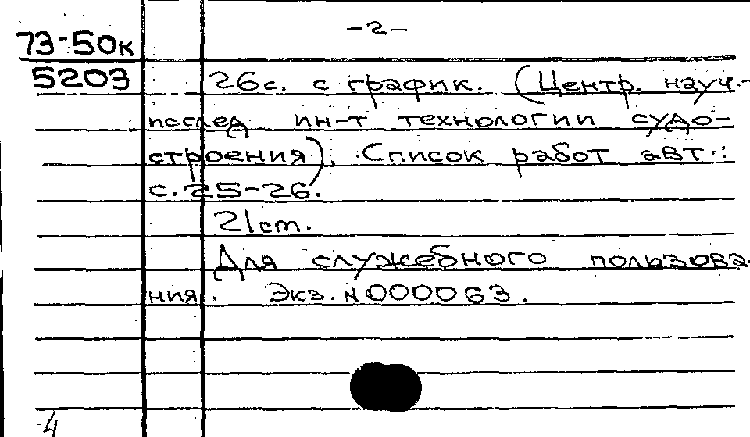 -2-
73-50к
5203
26с. с график. (Центр. науч.-
послед. ин-т технологии судо-
строения). Список работ авт.:
с. 25-26.
21 ст.
Для служебного пользова-
ния. Экз. N 000063.
4